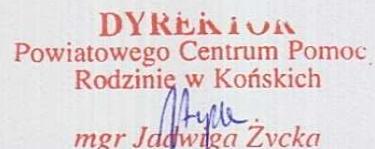 DYREKTOR
Powiatowego Centrum Pomoc
Rodzinie w Końskich
mgr Jadwiga Życka